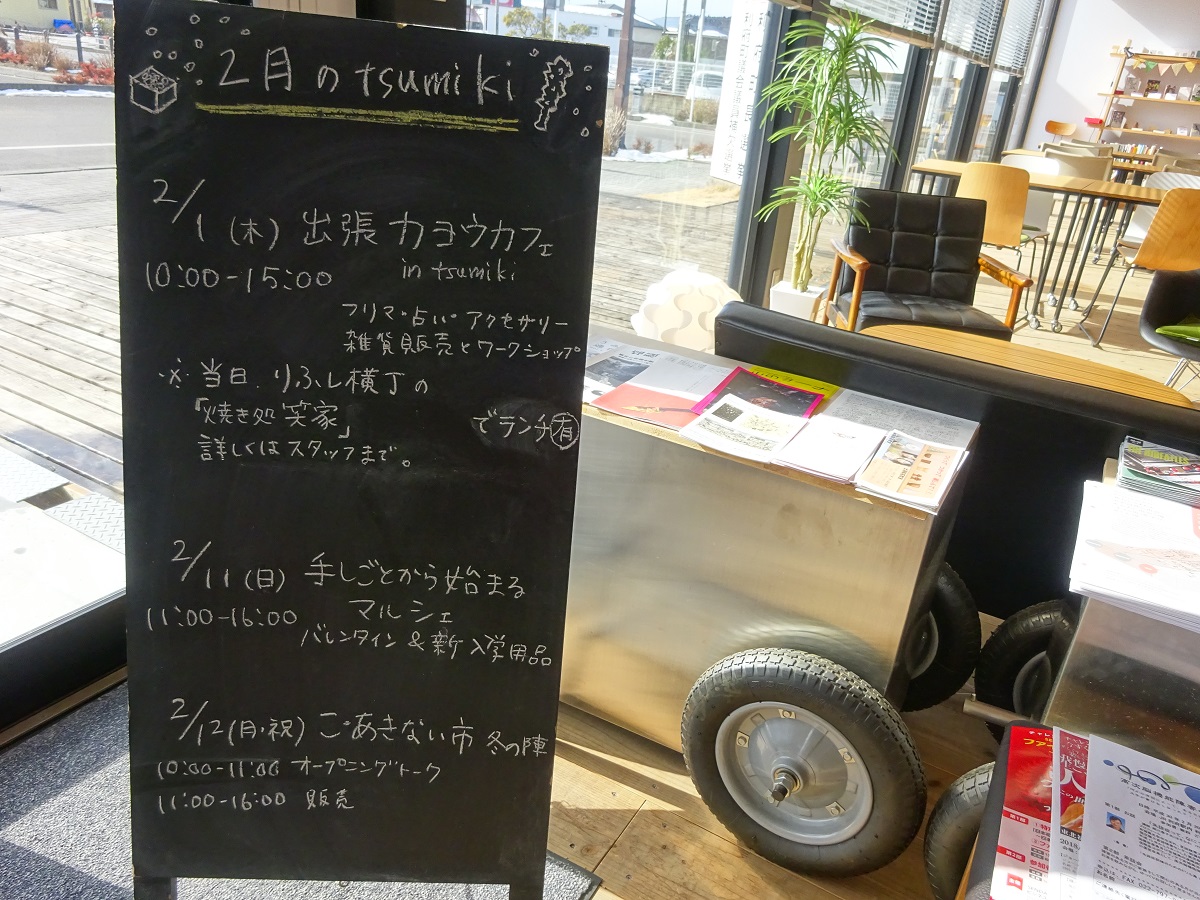 2月のtsumiki
2/1(木) 出張カヨウカフェ
10:00-15:00 in tsumiki
フリマ・占い・アクセサリー
雑貨販売とワークショップ
※当日、りふレ横丁の
「焼き処 笑家」でランチ有
詳しくはスタッフまで。
2/11(日) 手しごとから始まる
11:00-16:00 マルシェ
バレンタイン&新入学用品
2/12(月・祝) ごあきない市 冬の陣
10:00-11:00 オープニングトーク
11:00-16:00 販売